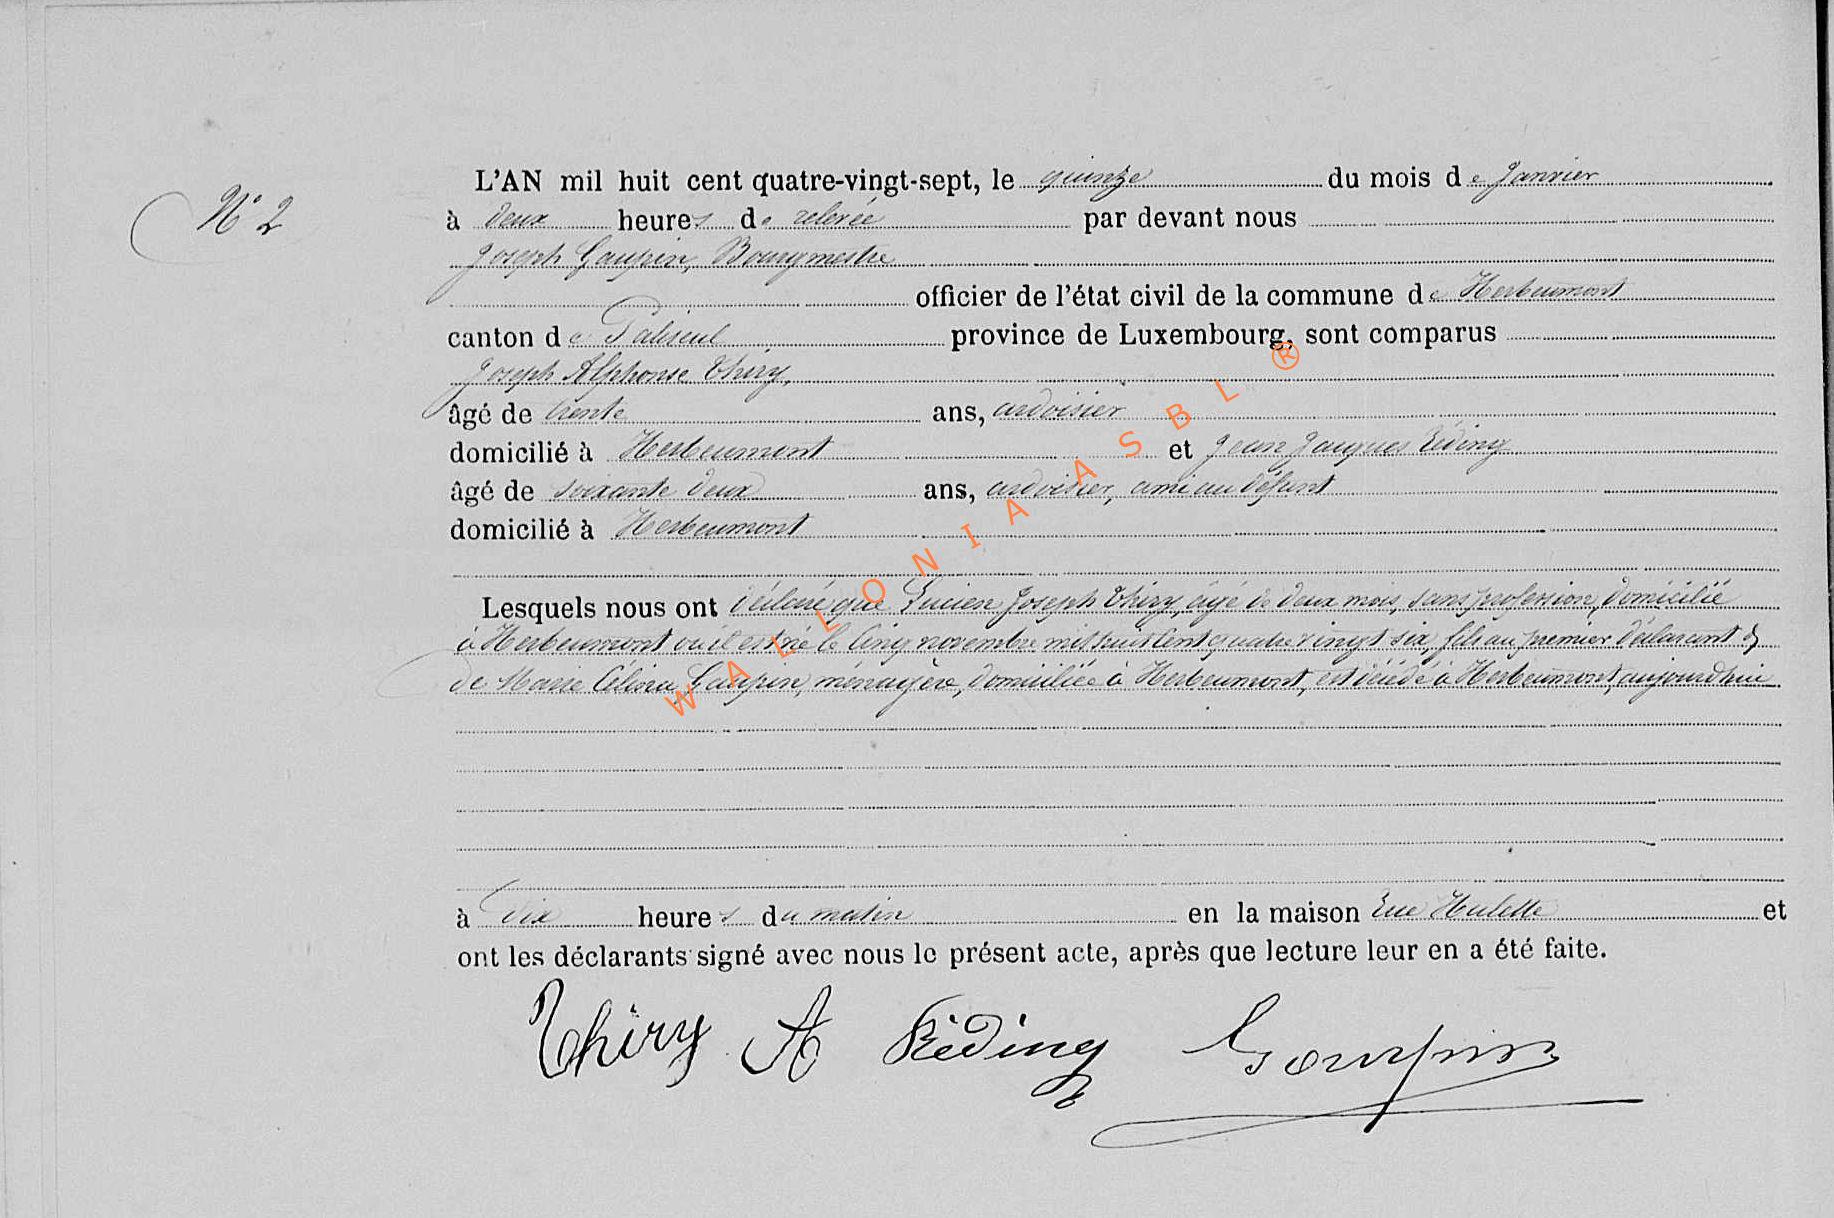 N° 2
L'AN mil huit cent quatre-vingt-sept, le quinze du mois de Janvier
à deux heures de relevée par devant nous
Joseph Gaupin, Bourgmestre
officier de l'état civil de la commune de Herbeumont
canton de Paliseul province de Luxembourg, sont comparus
Joseph Alphonse Thiry,
âgé de trente ans, ardoisier
domicilié à Herbeumont et Jean Jacques Réding
âgé de soixante deux ans, ardoisier, ami au défunt
domicilié à Herbeumont
Lesquels nous ont déclaré que Lucien Joseph Thiry, âgé de deux mois, sans profession, domicilié
à Herbeumont où il est né le cinq novembre mil huit cent quatre vingt six, fils au premier déclarant &
de Marie Célina Gaupin, ménagère, domiciliée à Herbeumont, est décédé à Herbeumont, aujourd'hui
à dix heures du matin en la maison Rue Hulette et
ont les déclarants signé avec nous le présent acte, après que lecture leur en a été faite.
Thiry A Réding Gaupin
WALLONIA ASBL ®